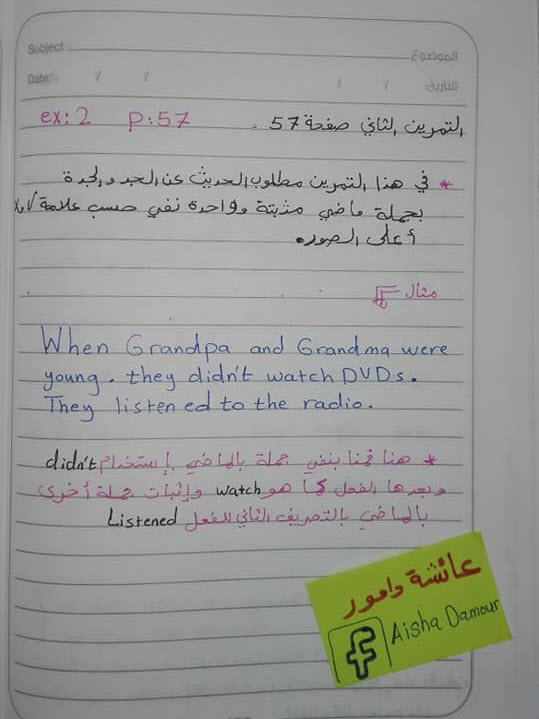 Subject الموضوع
Date: / / / / التاريخ:
ex:2 p:57 التمرين الثاني صفحة 57.
* في هذا التمرين مطلوب الحديث عن الجد والجدة
بجملة ماضي مثبتة وواحدة نفي حسب علامة √
أعلى الصور.
مثال
When Grandpa and Grandma were
young. they didn't watch DVDs.
They listened to the radio.
* هنا قمنا بنفي جملة بالماضي بإستخدام didn't
وبعدها الفعل كما هو watch وإثبات جملة أخرى
بالماضي بالتصريف الثاني للفعل Listened
عائشة دامور
f Aisha Damour